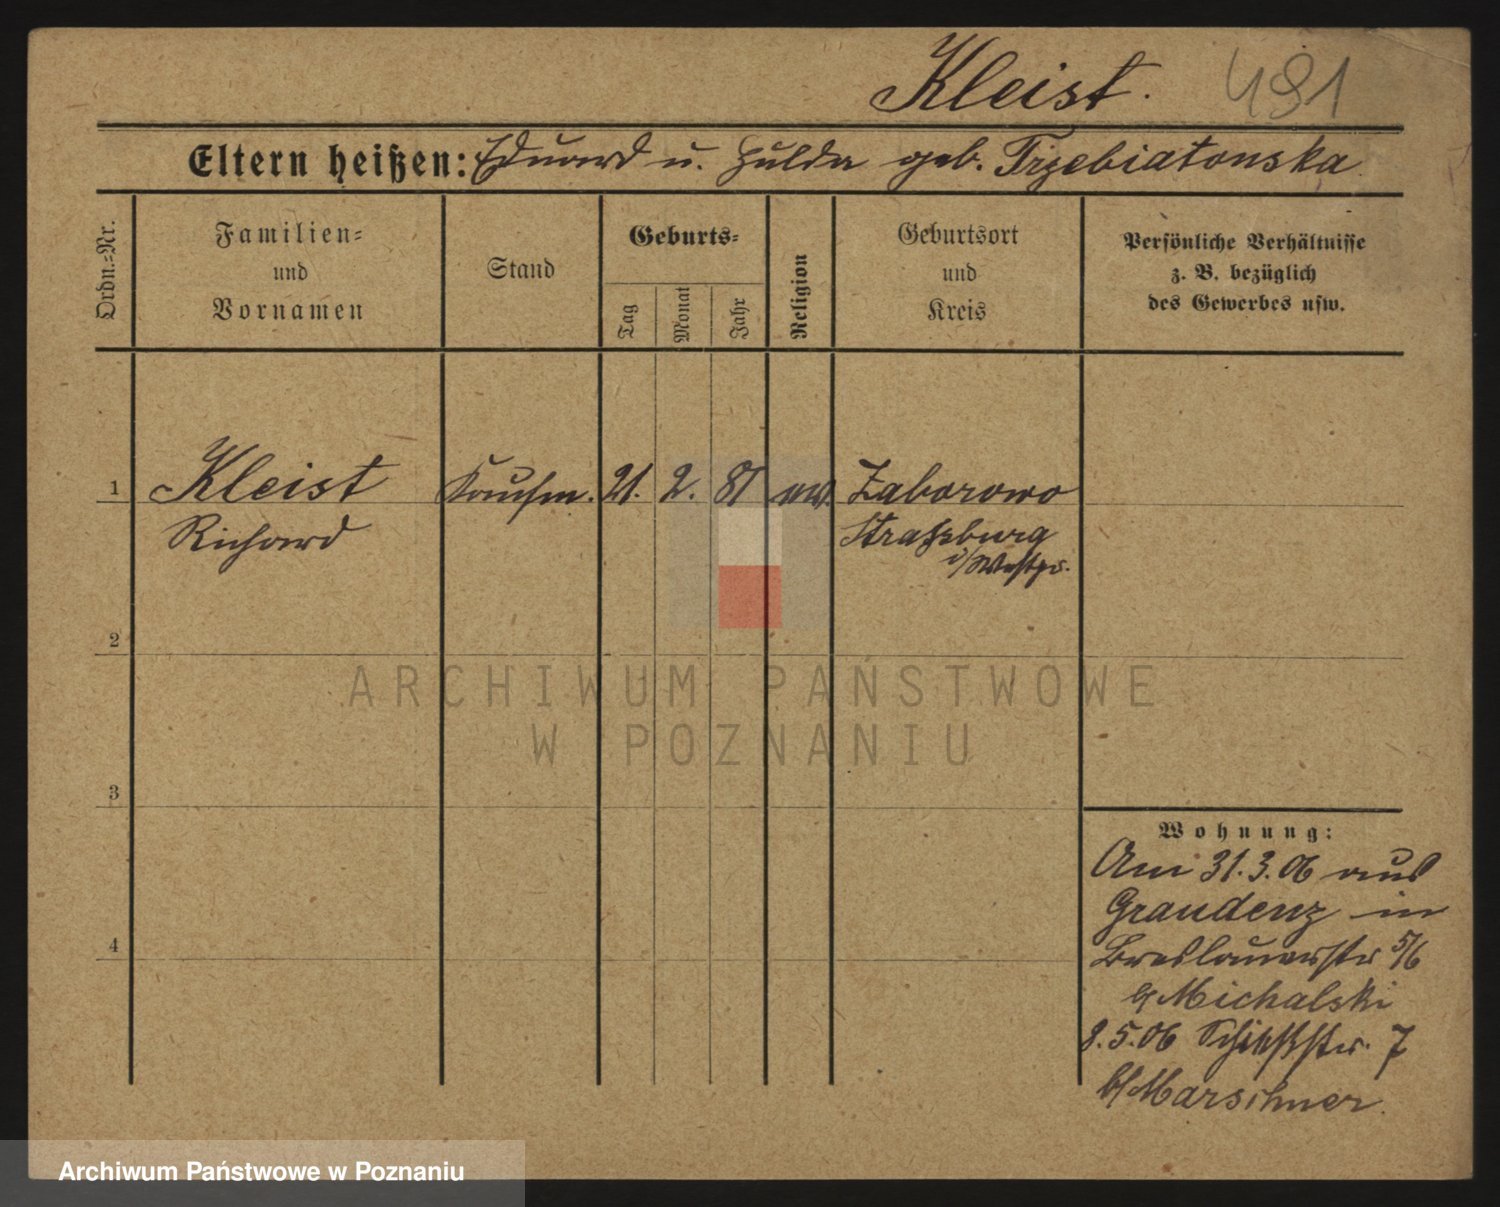 Kleist. 491
Eltern heißen: Eduard u. Hulda geb. Trzebiatonska
Ordn.=Nr.
Familien=
und
Vornamen
Stand
Geburts=
Tag
Monat
Jahr
Religion
Geburtsort
und
Kreis
Persönliche Verhältnisse
z. B. bezüglich
des Gewerbes usw.
1 Kleist Kaufm. 21. 2. 81 ev. Zaborowo
Richard Straßburg
i/Westpr.
2
3
4
Wohnung:
Am 31.3.06 aus
Graudenz in
Breslauerstr 5/6
b/ Michalski
8.5.06 Schießstr. 7
b/ Marschner.
ARCHIWUM PAŃSTWOWE
W POZNANIU
Archiwum Państwowe w Poznaniu